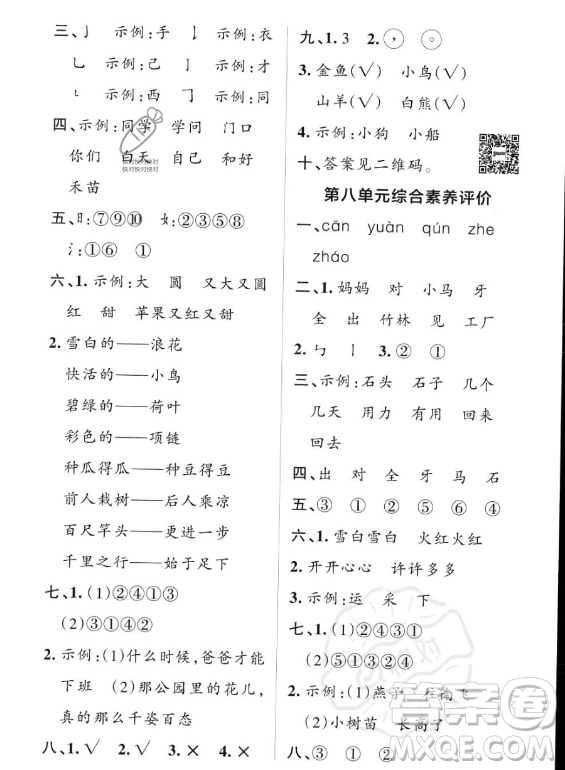 三、亅 示例:手 亅 示例:衣
乚 示例:己 亅 示例:才
示例:西 ㇆ 示例:同
四、示例:同学 学问 门口
你们 白天 自己 和好
禾苗
快对快对快对
快对快对快对
五、日:⑦⑨⑩ 女:②③⑧
氵:①⑥ 辶:④⑤
六、1. 示例:大 圆 又大又圆
红 甜 苹果又红又甜
2. 雪白的——浪花
快活的——小鸟
碧绿的——荷叶
彩色的——项链
种瓜得瓜——种豆得豆
前人栽树——后人乘凉
百尺竿头——更进一步
千里之行——始于足下
七、1. (1)②④①③
(2)③①④②
2. 示例:(1)什么时候,爸爸才能
下班 (2)那公园里的花儿,
真的那么千姿百态
八、1. √ 2. √ 3. × 4. ×
九、1. 3 2. , 。
3. 金鱼(√) 小鸟(√)
山羊(√) 白熊(√)
4. 示例:小狗 小船
十、答案见二维码。
第八单元综合素养评价
一、cān yuàn qún zhe
zháo
二、1. 妈妈 对 小马 牙
全 出 竹林 见 工厂
2. ㄣ 丨 3. ② ①
三、示例:石头 石子 几个
几天 用力 有用 回来
回去
四、出 对 全 牙 马 石
五、③ ① ② ⑤ ⑥ ④
六、1. 雪白雪白 火红火红
2. 开开心心 许许多多
3. 示例:运 采 下
七、1. ②④③①
2. 示例:(1)燕子 在 飞
(2)小树苗 长高了
八、③ ① ② ④
答案圈
MXQE.COM